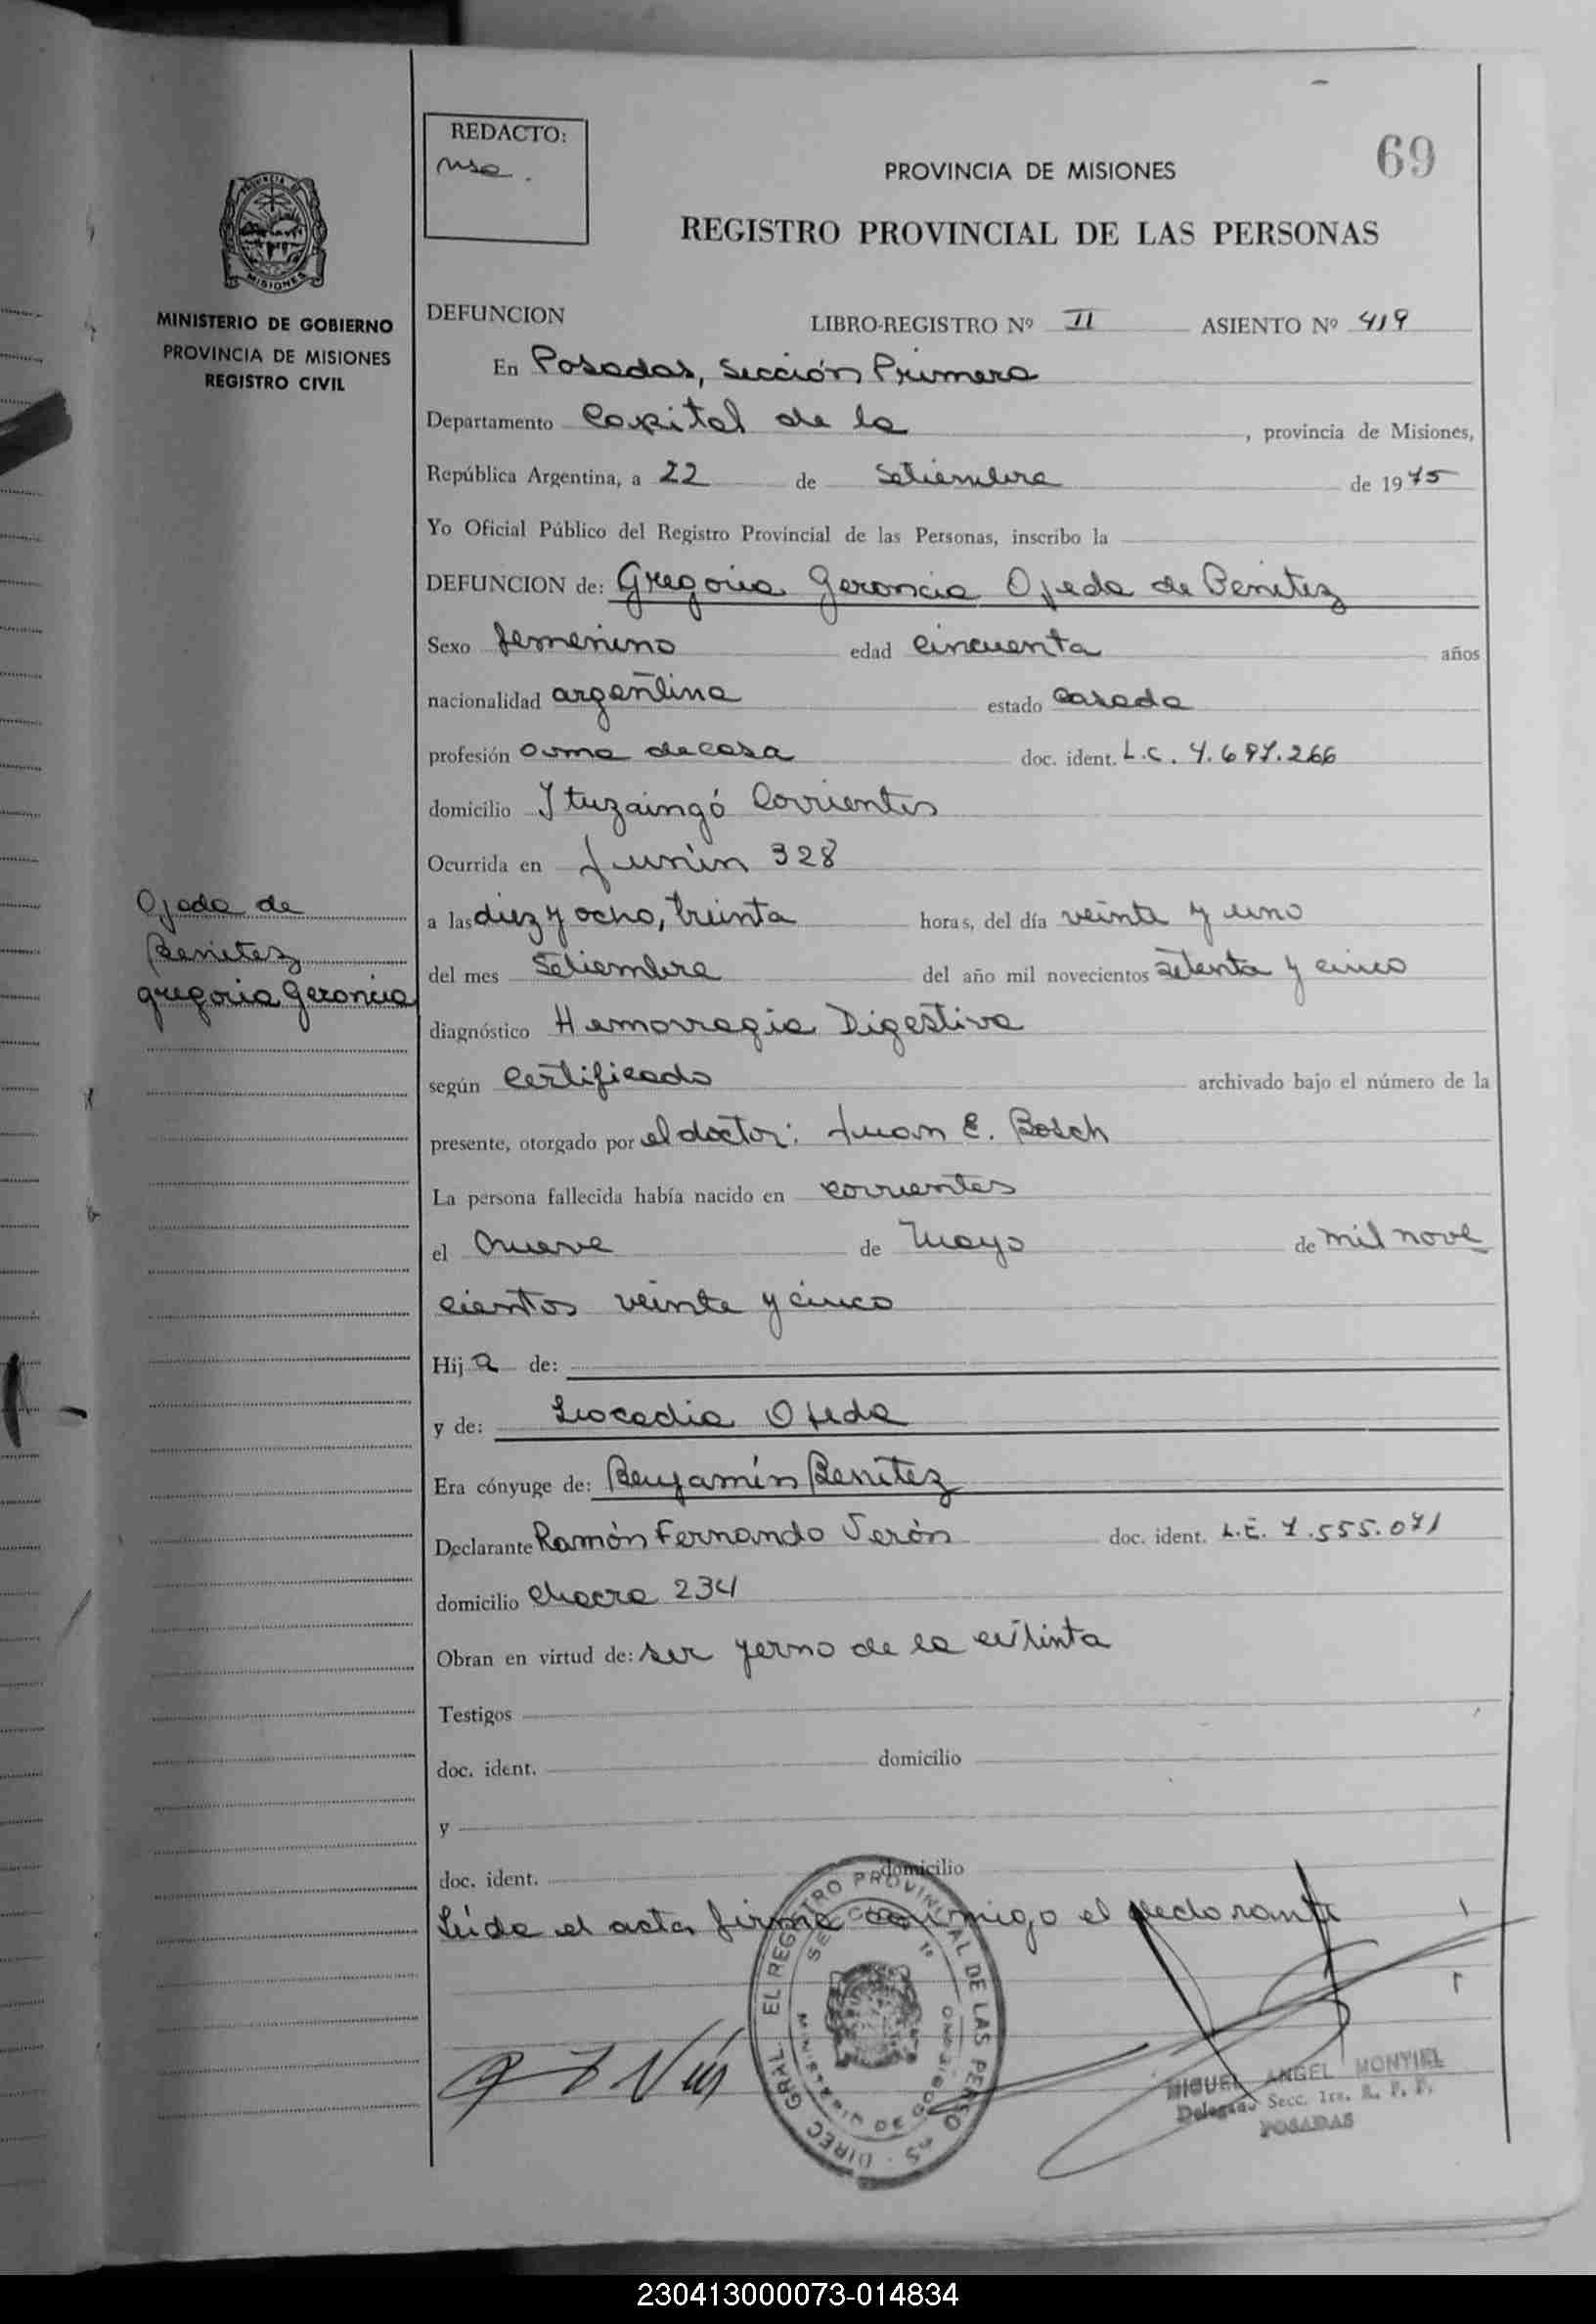 REDACTO:
69
PROVINCIA DE MISIONES
REGISTRO PROVINCIAL DE LAS PERSONAS
PROVINCIA DE
MISIONES
MINISTERIO DE GOBIERNO
PROVINCIA DE MISIONES
REGISTRO CIVIL
DEFUNCION LIBRO-REGISTRO Nº II ASIENTO Nº 419
En Posadas, Sección Primera
Departamento Capital de la , provincia de Misiones,
República Argentina, a 22 de Setiembre de 1975
Yo Oficial Público del Registro Provincial de las Personas, inscribo la
DEFUNCION de: Gregoria Geroncia Ojeda de Benitez
Sexo femenino edad cincuenta años
nacionalidad argentina estado casada
profesión ama de casa doc. ident. L.C.
domicilio Ituzaingó Corrientes
Ocurrida en Junin 328
a las diez y ocho, treinta horas, del día veinte y uno
del mes Setiembre del año mil novecientos setenta y cinco
diagnóstico Hemorragia Digestiva
según Certificado archivado bajo el número de la
presente, otorgado por el doctor: Juan E. Bosch
La persona fallecida había nacido en corrientes
el nueve de Mayo de mil nove
cientos veinte y cinco
Hija de:
y de: Leocadia Ojeda
Era cónyuge de: Benjamín Benítez
Declarante Ramón Fernando Verón doc. ident. L.E.
domicilio chacra 234
Obran en virtud de: ser yerno de la extinta
Testigos
doc. ident. domicilio
y
doc. ident. domicilio
Leída el acta, firma conmigo el declarante
Ojeda de
Benitez
gregoria Geroncia
DIREC. GRAL. EL REGISTRO PROVINCIAL DE LAS PERSONAS
SECCION 1ª
MINISTERIO DE GOBIERNO
MIGUEL ANGEL MONTIEL
Delegado Secc. 1ra. R. P. P.
POSADAS
230413000073-014834